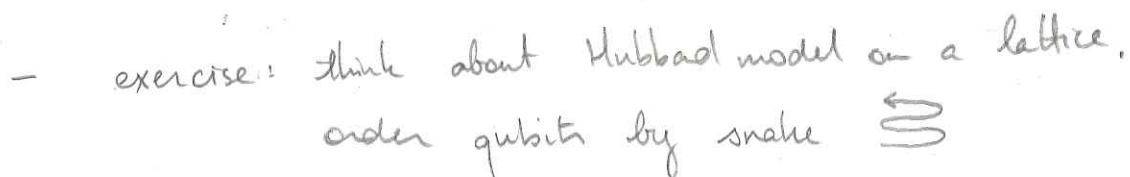 - exercise: think about Hubbad model on a lattice.
order qubits by snake